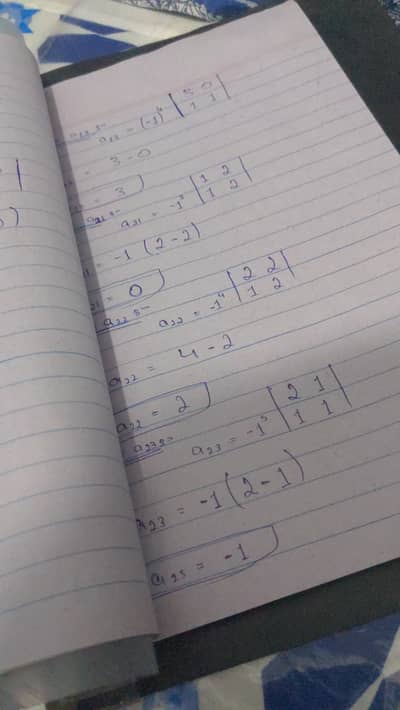 a₁₃ = (-1)⁴ | 3 0 |
| 1 1 |
= 3 - 0
= 3
a₂₁ = -1³ | 1 2 |
| 1 2 |
= -1 (2-2)
= 0
a₂₂ :-
a₂₂ = -1⁴ | 2 2 |
| 1 2 |
a₂₂ = 4 - 2
a₂₂ = 2
a₂₃ :-
a₂₃ = -1⁵ | 2 1 |
| 1 1 |
a₂₃ = -1 (2-1)
a₂₃ = -1